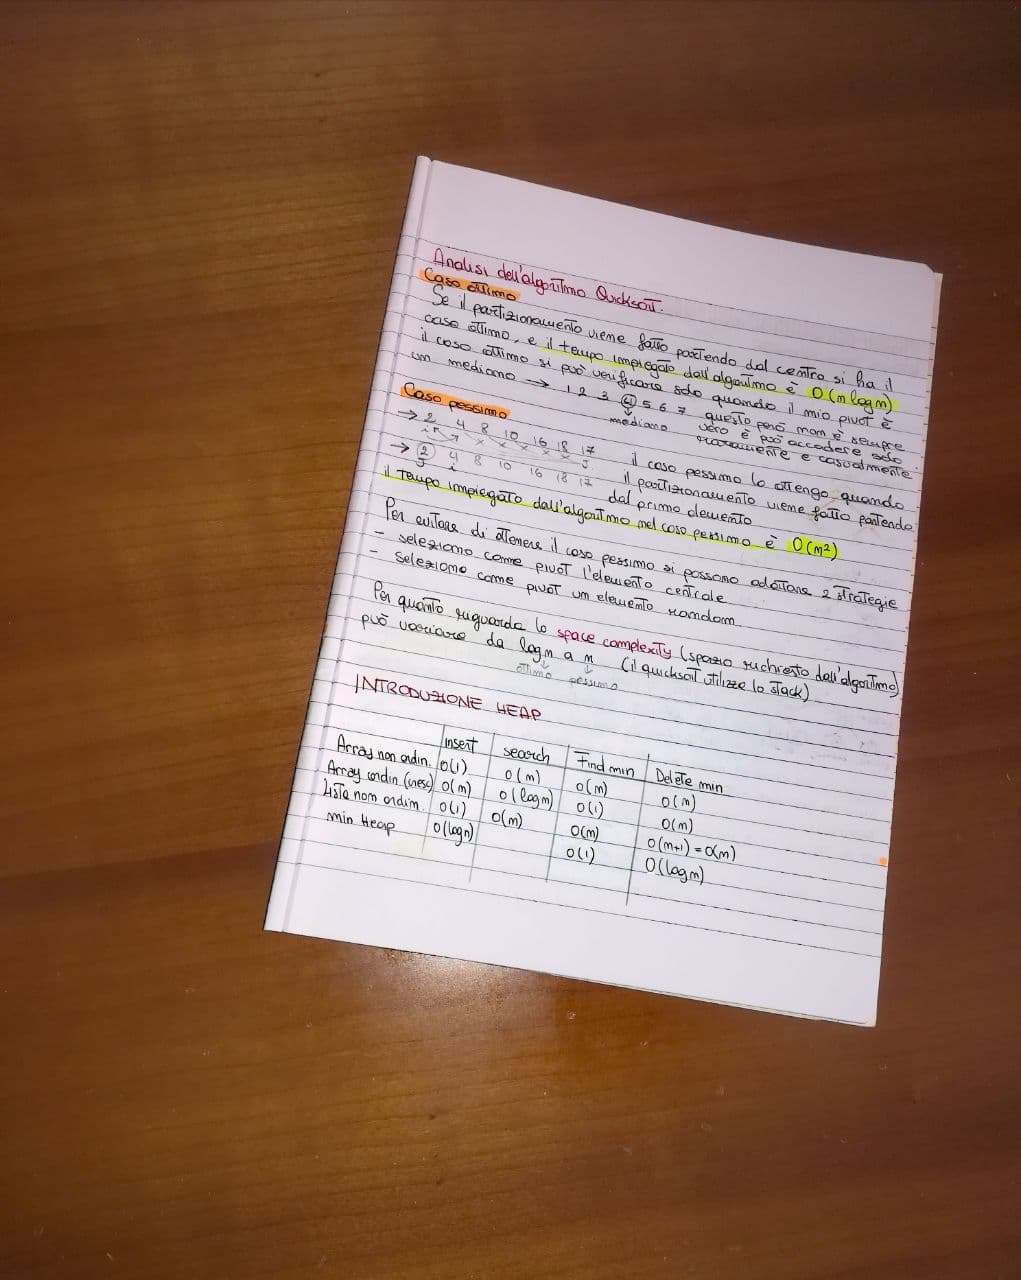 Analisi dell'algoritmo Quicksort.
Caso ottimo
Se il partizionamento viene fatto partendo dal centro si ha il
caso ottimo, e il tempo impiegato dall'algoritmo è O(n log n)
il caso ottimo si può verificare solo quando il mio pivot è
un mediano → 1 2 3 4 5 6 7 questo però non è sempre
mediano vero e può accadere solo
raramente e casualmente
Caso pessimo
→ 2 4 8 10 16 18 17
i j
il caso pessimo lo ottengo quando
→ 2 4 8 10 16 18 17
j i
il partizionamento viene fatto partendo
dal primo elemento
il tempo impiegato dall'algoritmo nel caso pessimo è O(n²)
Per evitare di ottenere il caso pessimo si possono adottare 2 strategie
- seleziono come pivot l'elemento centrale
- seleziono come pivot un elemento random
Per quanto riguarda la space complexity (spazio richiesto dall'algoritmo)
può variare da log n a n (il quicksort utilizza lo stack)
ottimo pessimo
INTRODUZIONE HEAP
insert search Find min Delete min
Array non ordin. O(1) O(n) O(n) O(n)
Array ordin (cresc) O(n) O(log n) O(1) O(n)
Lista non ordin. O(1) O(n) O(n) O(n+1) = O(n)
min Heap O(log n) O(1) O(log n)